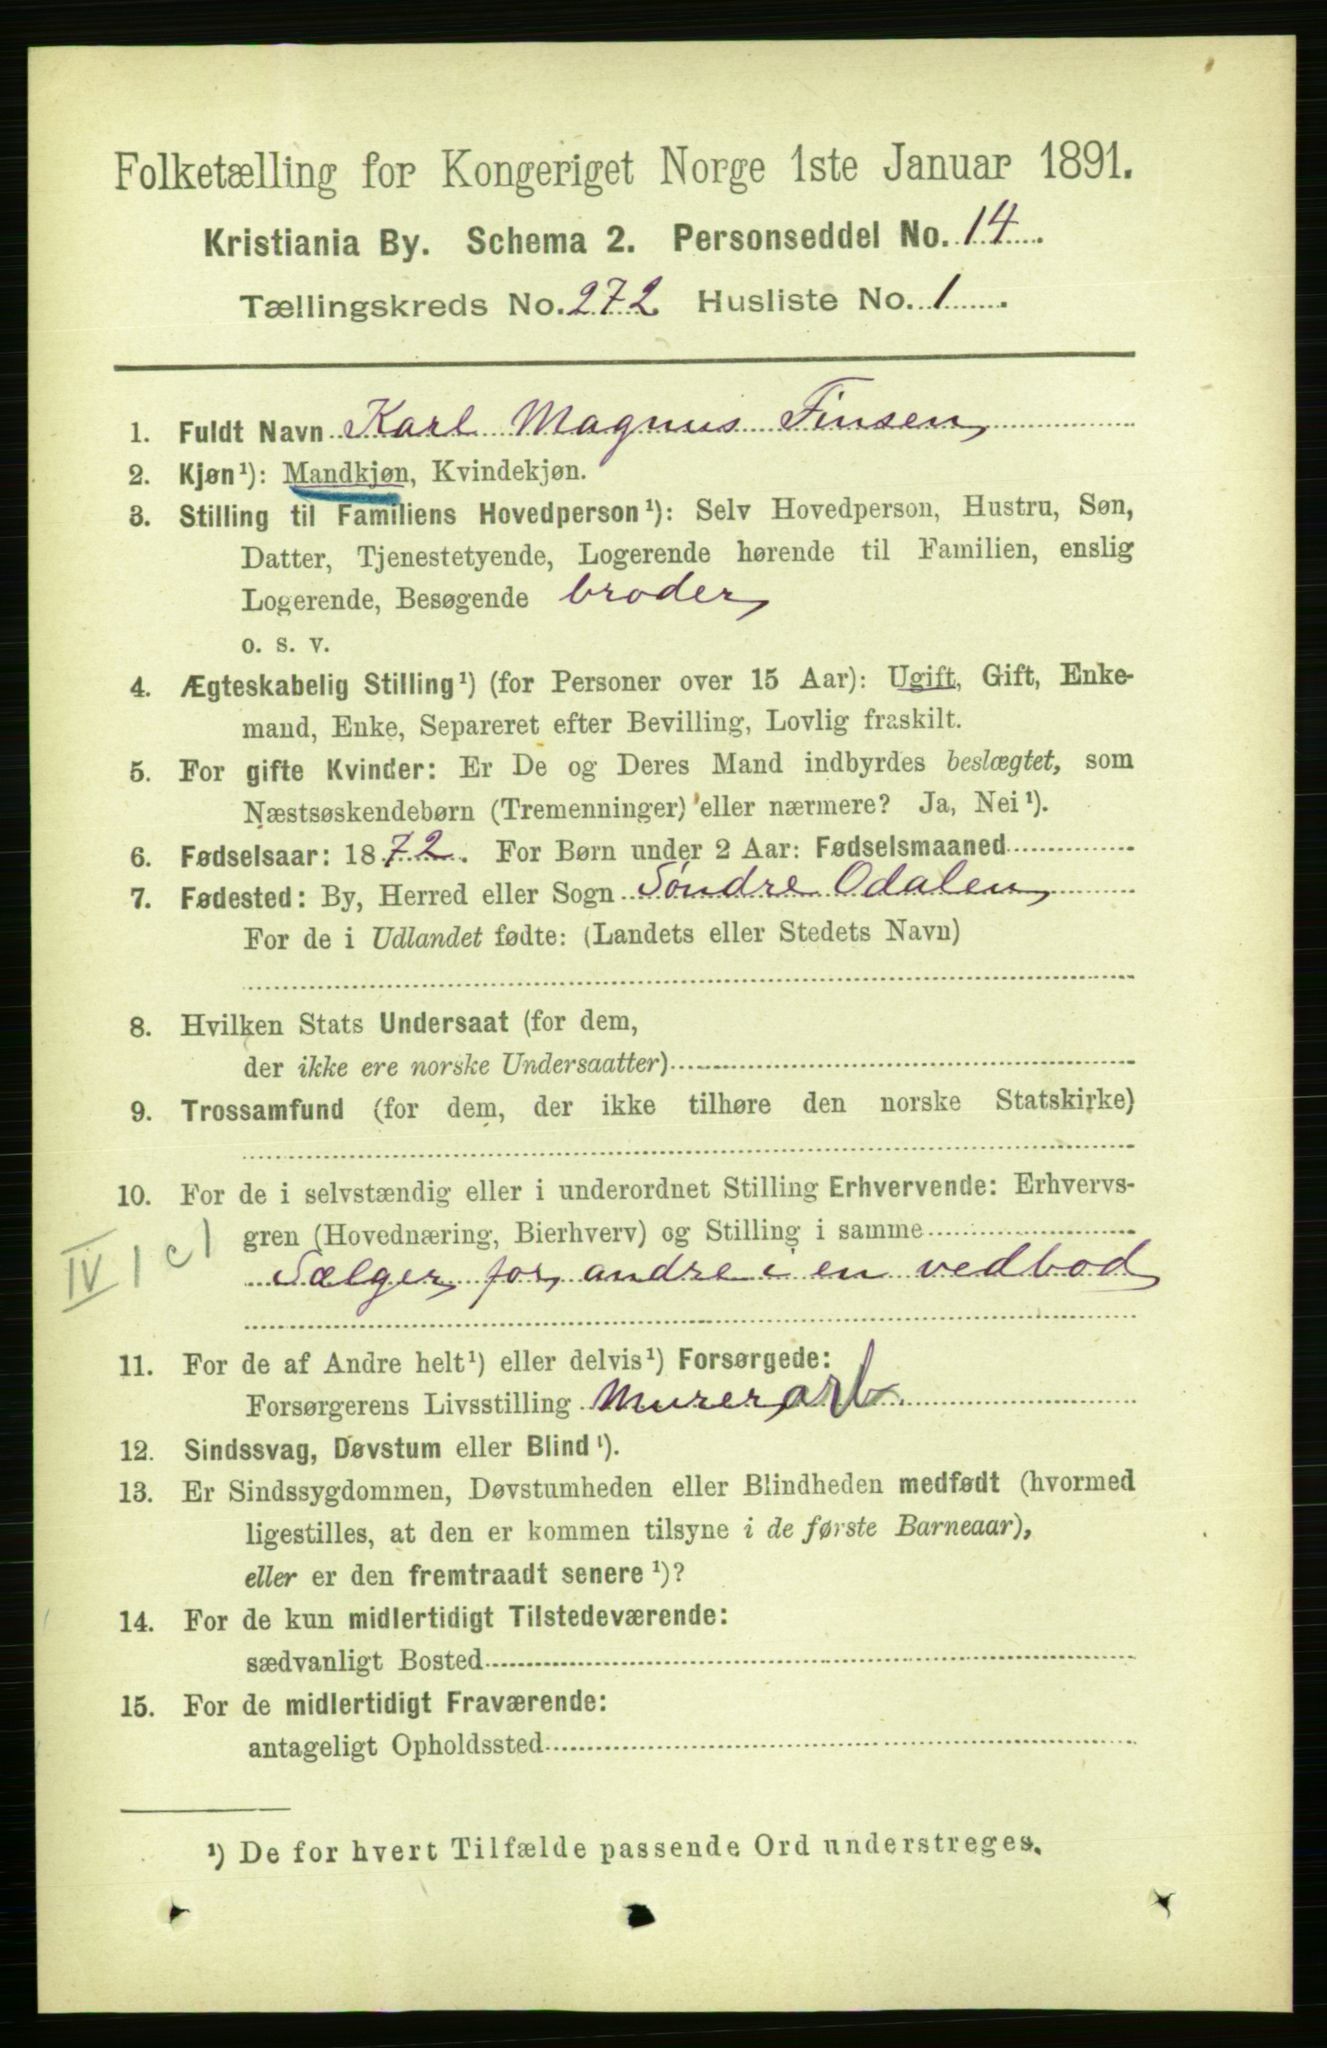 Folketælling for Kongeriget Norge 1ste Januar 1891.
Kristiania By. Schema 2. Personseddel No. 14
Tællingskreds No. 272 Husliste No. 1
1. Fuldt Navn Karl Magnus Finsen
2. Kjøn¹): Mandkjøn, Kvindekjøn.
3. Stilling til Familiens Hovedperson¹): Selv Hovedperson, Hustru, Søn,
Datter, Tjenestetyende, Logerende hørende til Familien, enslig
Logerende, Besøgende broder
o. s. v.
4. Ægteskabelig Stilling¹) (for Personer over 15 Aar): Ugift, Gift, Enke-
mand, Enke, Separeret efter Bevilling, Lovlig fraskilt.
5. For gifte Kvinder: Er De og Deres Mand indbyrdes beslægtet, som
Næstsøskendebørn (Tremenninger) eller nærmere? Ja, Nei¹).
6. Fødselsaar: 1872. For Børn under 2 Aar: Fødselsmaaned
7. Fødested: By, Herred eller Sogn Søndre Odalen
For de i Udlandet fødte: (Landets eller Stedets Navn)
8. Hvilken Stats Undersaat (for dem,
der ikke ere norske Undersaatter)
9. Trossamfund (for dem, der ikke tilhøre den norske Statskirke)
10. For de i selvstændig eller i underordnet Stilling Erhvervende: Erhvervs-
gren (Hovednæring, Bierhverv) og Stilling i samme
IV 1 c 1
Sælger for andre i en vedbod
11. For de af Andre helt¹) eller delvis¹) Forsørgede:
Forsørgerens Livsstilling Murerarb.
12. Sindssvag, Døvstum eller Blind¹).
13. Er Sindssygdommen, Døvstumheden eller Blindheden medfødt (hvormed
ligestilles, at den er kommen tilsyne i de første Barneaar),
eller er den fremtraadt senere¹)?
14. For de kun midlertidigt Tilstedeværende:
sædvanligt Bosted
15. For de midlertidigt Fraværende:
antageligt Opholdssted
¹) De for hvert Tilfælde passende Ord understreges.